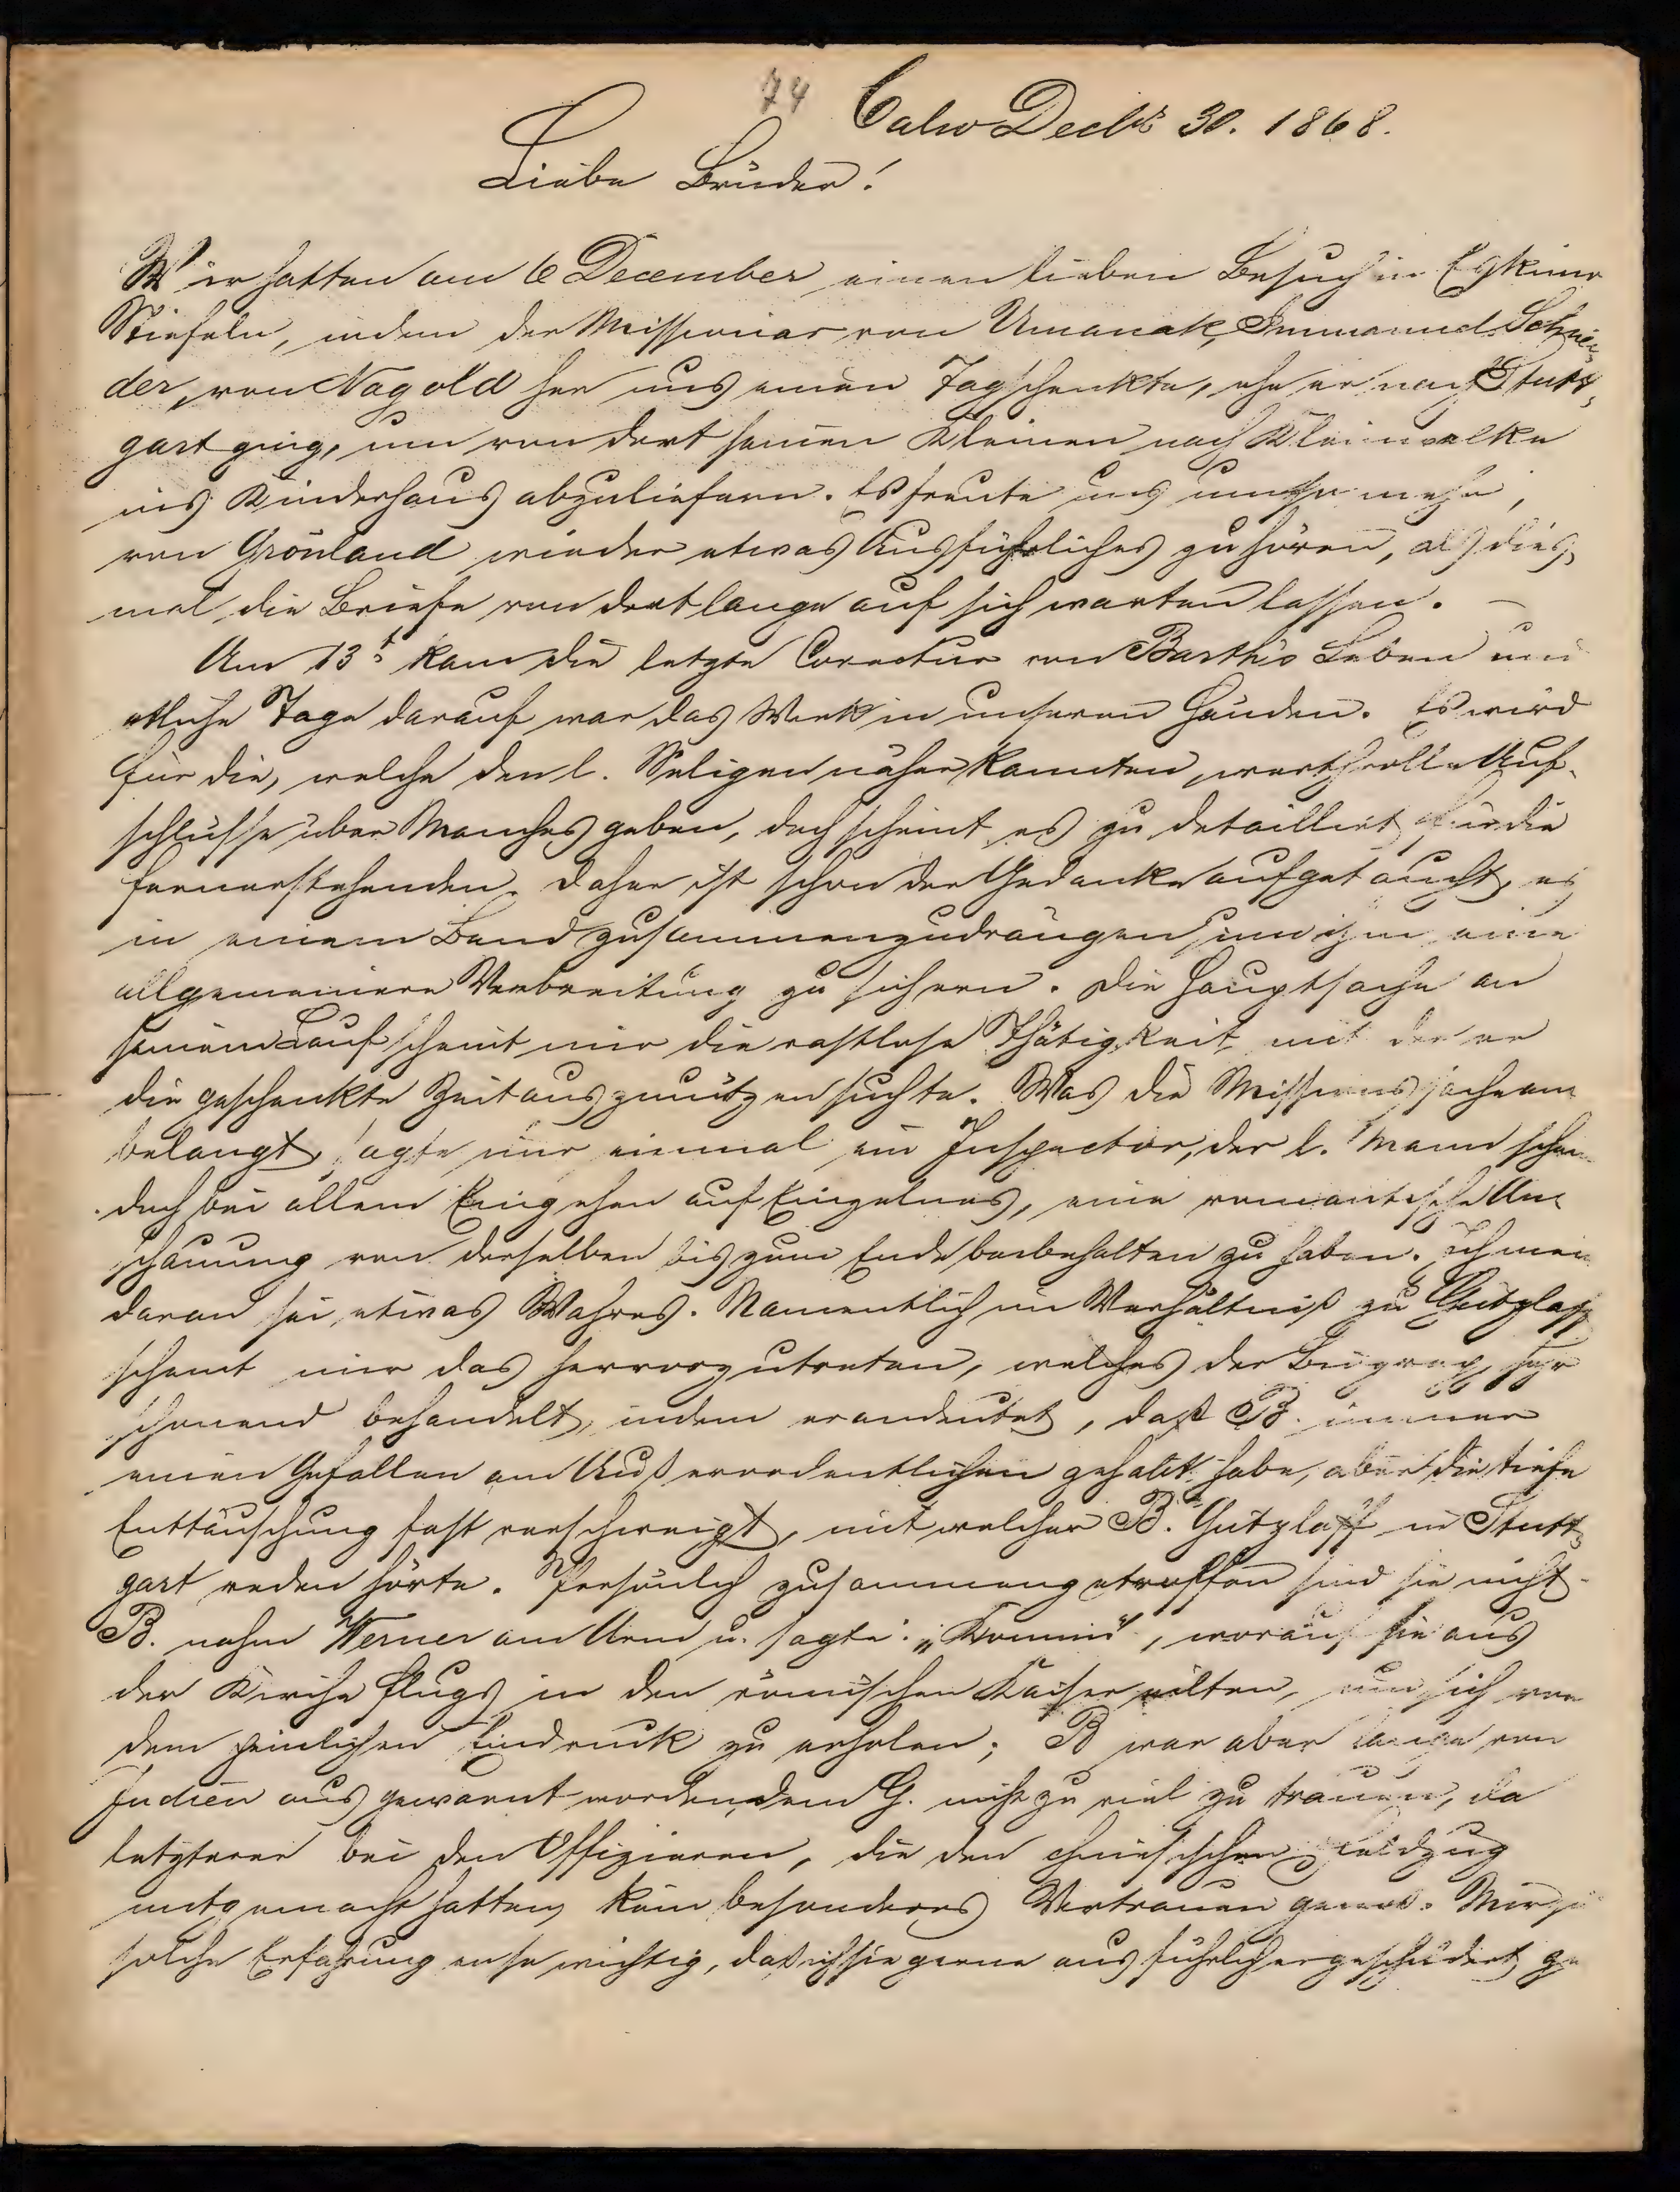 74 Calw Decbr 30. 1868.
Liebe Brüder!
Wir hatten am 6 December einen lieben Besuch in Eskimo
Stiefeln, indem der Missionar von Umanak, Immanuel Schnei-
der, von Nagold her uns einen Tag schenkte, ehe er nach Stutt-
gart ging, um von dort seinen Kleinen nach Kleinwelke
ins Kinderhaus abzuliefern. Es freute uns um so mehr,
von Grönland wieder etwas Ausführliches zu hören, als dies-
mal die Briefe von dort lange auf sich warten lassen. –
Am 13t kam die letzte Corectur von Barth's Leben und
etliche Tage darauf war das Werk in unseren Händen. Es wird
für die, welche den l. Seligen näher kannten, werthvolle Auf-
schlüsse über Manches geben, doch scheint es zu detailliert für die
fernerstehenden. Daher ist schon der Gedanke aufgetaucht, es
in einem Band zusammenzudrängen, um ihm eine
allgemeinere Verbreitung zu sichern. Die Hauptsache an
seinem Lauf scheint mir die rastlose Thätigkeit mit der er
die geschenkte Zeit auszunützen suchte. Was die Missionssache an-
belangt, sagte mir einmal ein Inspector, der l. Mann schei
doch bei allem Eingehen auf Einzelnes, eine romantische An-
schauung von derselben bis zum Ende beibehalten zu haben. Ich mein
daran sei etwas Wahres. Namentlich im Verhältniß zu Gützlaff
scheint mir das hervorzutreten, welches der Biograph sehr
schonend behandelt, indem er andeutet, daß B. immer
einen Gefallen am Außerordentlichen gehabt habe, aber die tiefe
Enttäuschung fast verschweigt, mit welcher B. Gützlaff in Stutt-
gart reden hörte. Persönlich zusammengetroffen sind sie nicht.
B. nahm Werner am Arm u. sagte: „Komm", worauf sie aus
der Kirche flugs in den römischen Kaiser eilten, um sich von
dem peinlichen Eindruck zu erholen; B war aber lange von
Indien aus gewarnt worden, dem G. nicht zu viel zu trauen, da
letzterer bei den Offizieren, die den chinesischen Feldzug
mitgemacht hatten, kein besonderes Vertrauen genoß. Mir
solche Erfahrung so wichtig, daß ich sie gerne ausführlicher geschildert ge